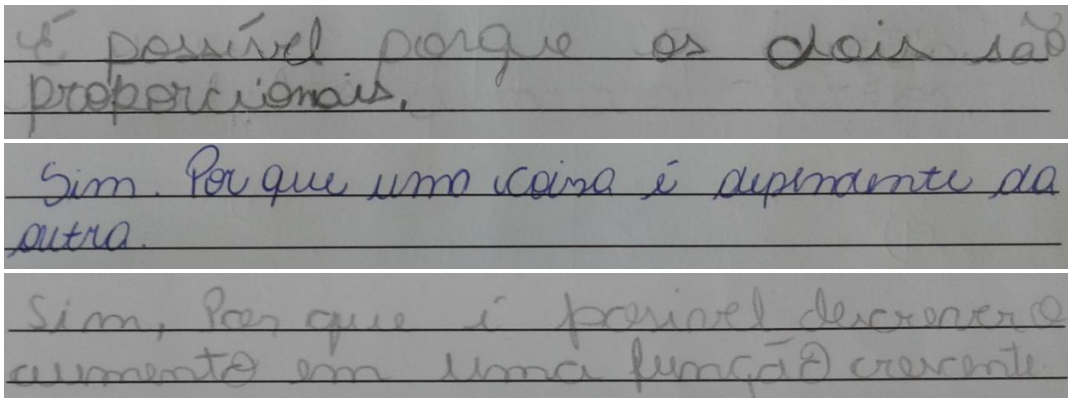 É possível porque os dois são
proporcionais.
Sim. Por que uma coisa é dependente da
outra.
Sim, Por que é possivel descrever o
aumento em uma função crescente.